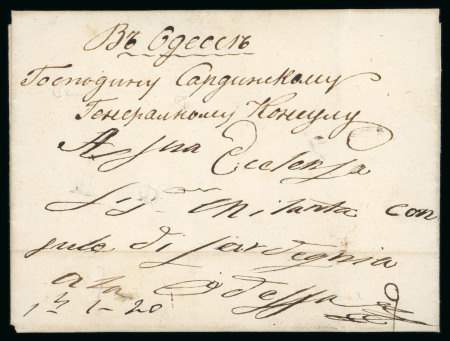 Въ Одессѣ
Господину Сардинскому
Генеральному Консулу
A Sua Ecelenza
Sig con
sule di Sardegnia
a la Odessa
1 1-20